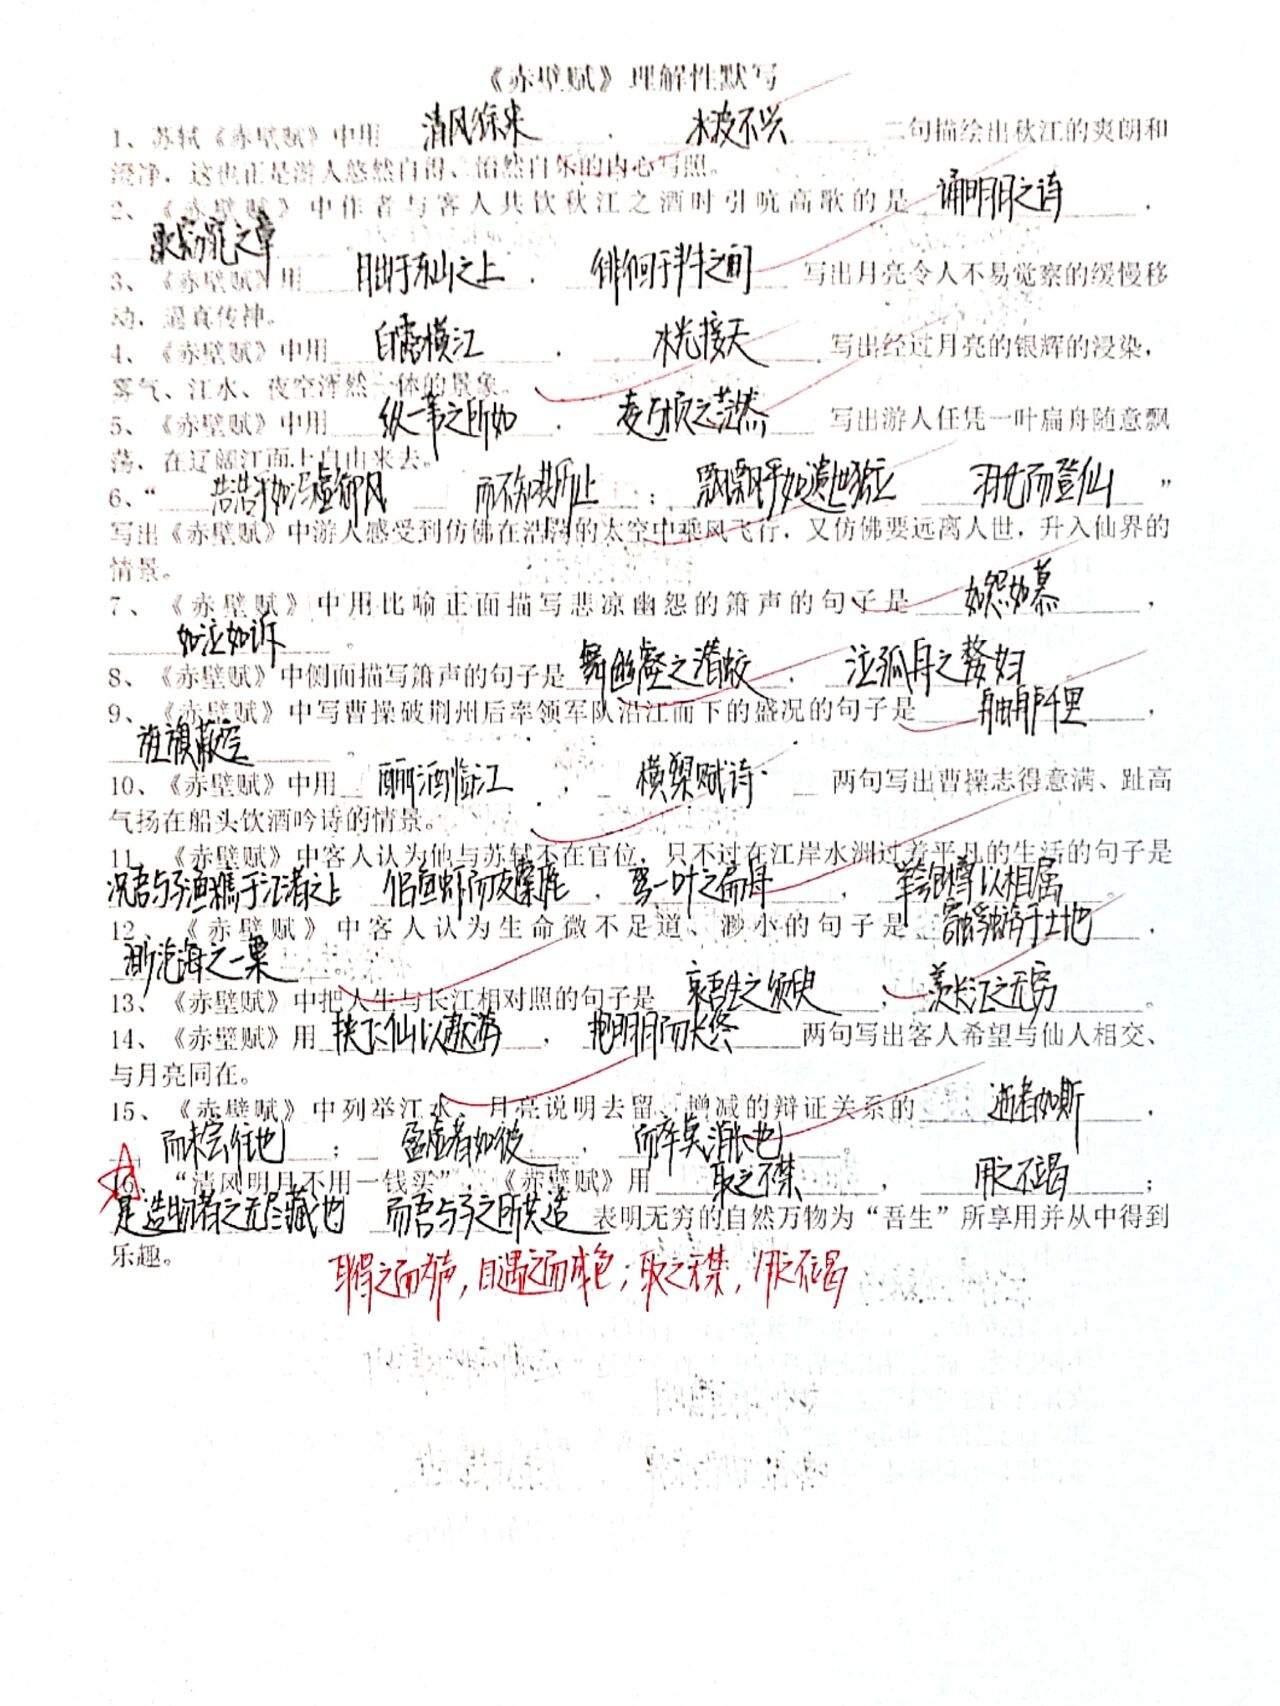 《赤壁赋》理解性默写
1、苏轼《赤壁赋》中用 清风徐来 ， 水波不兴 二句描绘出秋江的爽朗和
澄净，这也正是游人悠然自得、怡然自乐的内心写照。
2、《赤壁赋》中作者与客人共饮秋江之酒时引吭高歌的是 诵明月之诗 ，
歌窈窕之章
3、《赤壁赋》用 月出于东山之上 ， 徘徊于斗牛之间 写出月亮令人不易觉察的缓慢移
动，逼真传神。
4、《赤壁赋》中用 白露横江 ， 水光接天 写出经过月亮的银辉的浸染，
雾气、江水、夜空浑然一体的景象。
5、《赤壁赋》中用 纵一苇之所如 ， 凌万顷之茫然 写出游人任凭一叶扁舟随意飘
荡，在辽阔江面上自由来去。
6、“ 浩浩乎如冯虚御风 而不知其所止 ； 飘飘乎如遗世独立 羽化而登仙 ”
写出《赤壁赋》中游人感受到仿佛在浩荡的太空中乘风飞行，又仿佛要远离人世，升入仙界的
情景。
7、《赤壁赋》中用比喻正面描写悲凉幽怨的箫声的句子是 如怨如慕 ，
如泣如诉 。
8、《赤壁赋》中侧面描写箫声的句子是 舞幽壑之潜蛟 ， 泣孤舟之嫠妇 。
9、《赤壁赋》中写曹操破荆州后率领军队沿江而下的盛况的句子是 舳舻千里 ，
旌旗蔽空 。
10、《赤壁赋》中用 酾酒临江 ， 横槊赋诗 两句写出曹操志得意满、趾高
气扬在船头饮酒吟诗的情景。
11、《赤壁赋》中客人认为他与苏轼不在官位，只不过在江岸水洲过着平凡的生活的句子是
况吾与子渔樵于江渚之上 侣鱼虾而友麋鹿 ， 驾一叶之扁舟 ， 举匏樽以相属
12、《赤壁赋》中客人认为生命微不足道、渺小的句子是 寄蜉蝣于天地 ，
渺沧海之一粟
13、《赤壁赋》中把人生与长江相对照的句子是 哀吾生之须臾 ； 羡长江之无穷 。
14、《赤壁赋》用 挟飞仙以遨游 ， 抱明月而长终 两句写出客人希望与仙人相交、
与月亮同在。
15、《赤壁赋》中列举江水、月亮说明去留、增减的辩证关系的 逝者如斯 ，
而未尝往也 ； 盈虚者如彼 ， 而卒莫消长也
16、“清风明月不用一钱买”，《赤壁赋》用 取之不禁 ， 用之不竭 ；
是造物者之无尽藏也 而吾与子之所共造 表明无穷的自然万物为“吾生”所享用并从中得到
乐趣。
耳得之而为声，目遇之而成色，取之无禁，用之不竭